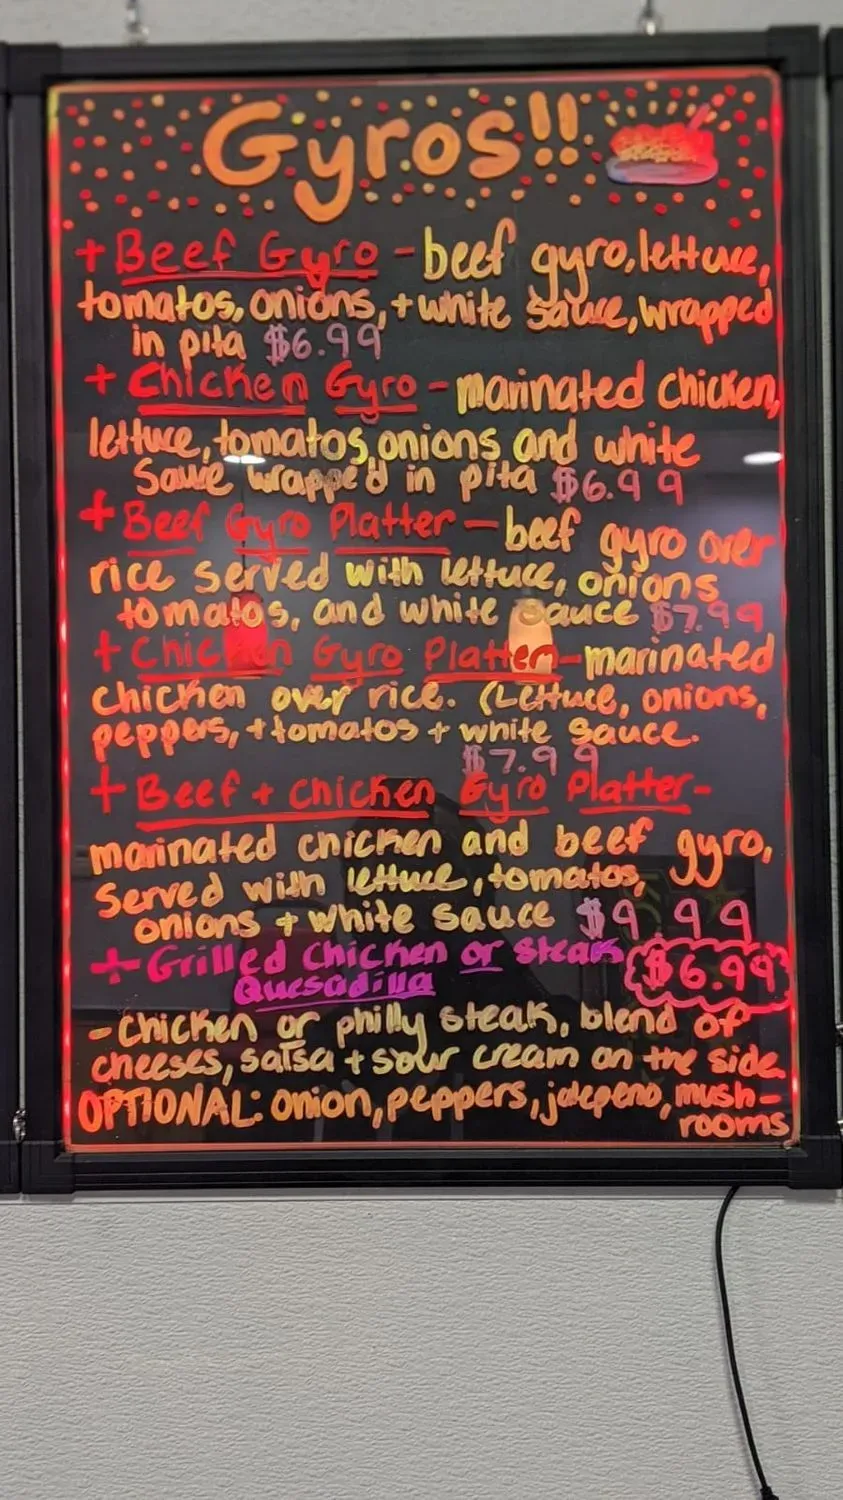 Gyros!!
+ Beef Gyro - beef gyro, lettuce,
tomatos, onions, + white sauce, wrapped
in pita $6.99
+ Chicken Gyro - marinated chicken,
lettuce, tomatos, onions and white
Sauce wrapped in pita $6.99
+ Beef Gyro Platter - beef gyro over
rice served with lettuce, onions
tomatos, and white sauce $7.99
+ Chicken Gyro Platter - marinated
chicken over rice. (Lettuce, onions,
peppers, + tomatos + white sauce.
$7.99
+ Beef + Chicken Gyro Platter -
marinated chicken and beef gyro,
Served with lettuce, tomatos,
onions + white sauce $9.99
+ Grilled Chicken or Steak $6.99
Quesadilla
- Chicken or philly steak, blend of
cheeses, salsa + sour cream on the side.
OPTIONAL: onion, peppers, jalepeno, mush-
rooms